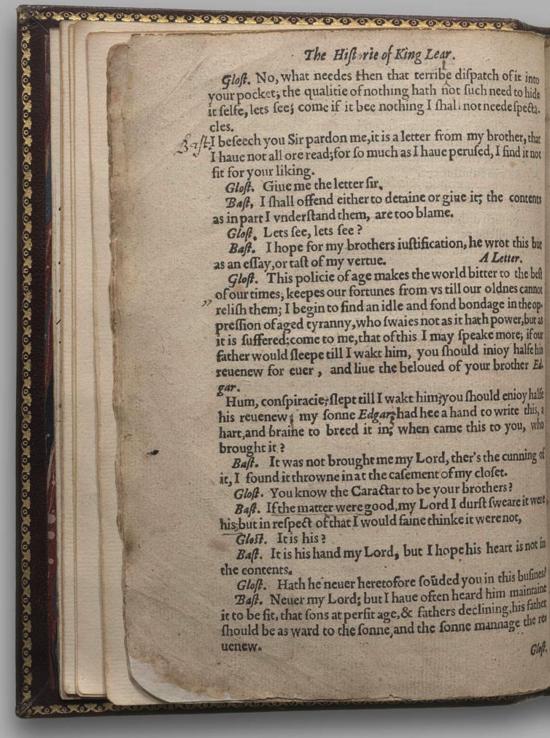 The Historie of King Lear.
Glost. No, what needes then that terribe dispatch of it into
your pocket; the qualitie of nothing hath not such need to hide
it selfe, lets see; come if it bee nothing I shal not neede specta-
cles.
Bast: I beseech you Sir pardon me, it is a letter from my brother, that
I haue not all ore read; for so much as I haue perused, I find it not
fit for your liking.
Glost. Giue me the letter sir.
Bast, I shall offend either to detaine or giue it; the contents
as in part I vnderstand them, are too blame.
Glost. Lets see, lets see?
Bast. I hope for my brothers iustification, he wrot this but
as an essay, or tast of my vertue. A Letter.
Glost. This policie of age makes the world bitter to the best
of our times; keepes our fortunes from vs till our oldnes cannot
„ relish them; I begin to find an idle and fond bondage in the op-
pression of aged tyranny, who swaies not as it hath power, but as
it is suffered: come to me, that of this I may speake more; if our
father would sleepe till I wakt him, you should inioy halfe his
reuenew for euer, and liue the beloued of your brother Ed-
gar.
Hum, conspiracie; slept till I wakt him; you should enioy halfe
his reuenew; my sonne Edgar; had hee a hand to write this, a
hart, and braine to breed it in; when came this to you, who
brought it?
Bast. It was not brought me my Lord, ther's the cunning of
it, I found it throwne in at the casement of my closet.
Glost. You know the Caractar to be your brothers?
Bast. If the matter were good, my Lord I durst sweare it were
his; but in respect of that I would faine thinke it were not,
Glost. It is his?
Bast. It is his hand my Lord, but I hope his heart is not in
the contents.
Glost. Hath he neuer heretofore soūded you in this busines?
Bast. Neuer my Lord; but I haue often heard him maintaine
it to be fit, that sons at perfit age, & fathers declining, his father
should be as ward to the sonne, and the sonne mannage the re-
uenew.
Glost.